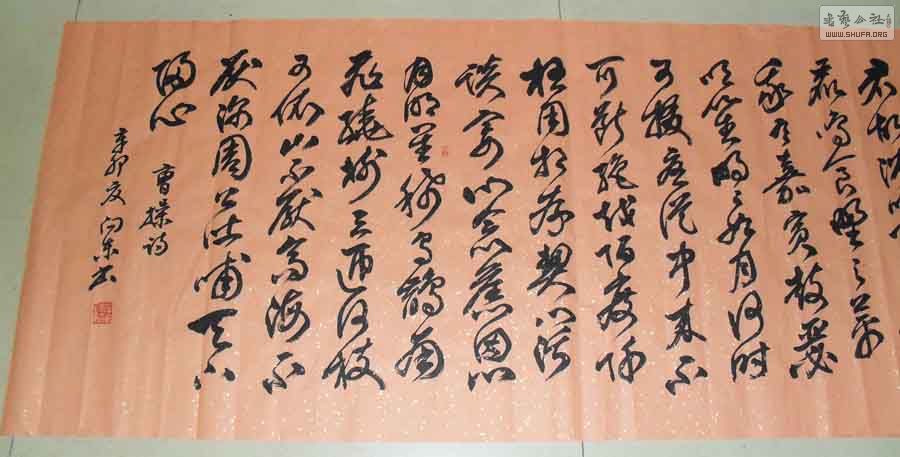 君故沈吟
鹿鸣食野之苹
我有嘉宾鼓瑟
吹笙明明如月何时
可掇忧从中来不
可断绝越陌度阡
枉用相存契阔
谈宴心念旧恩
月明星稀乌鹊南
飞绕树三匝何枝
可依山不厌高海不
厌深周公吐哺天下
归心
曹操诗
辛卯夏向东书
书艺公社
WWW.SHUFA.ORG